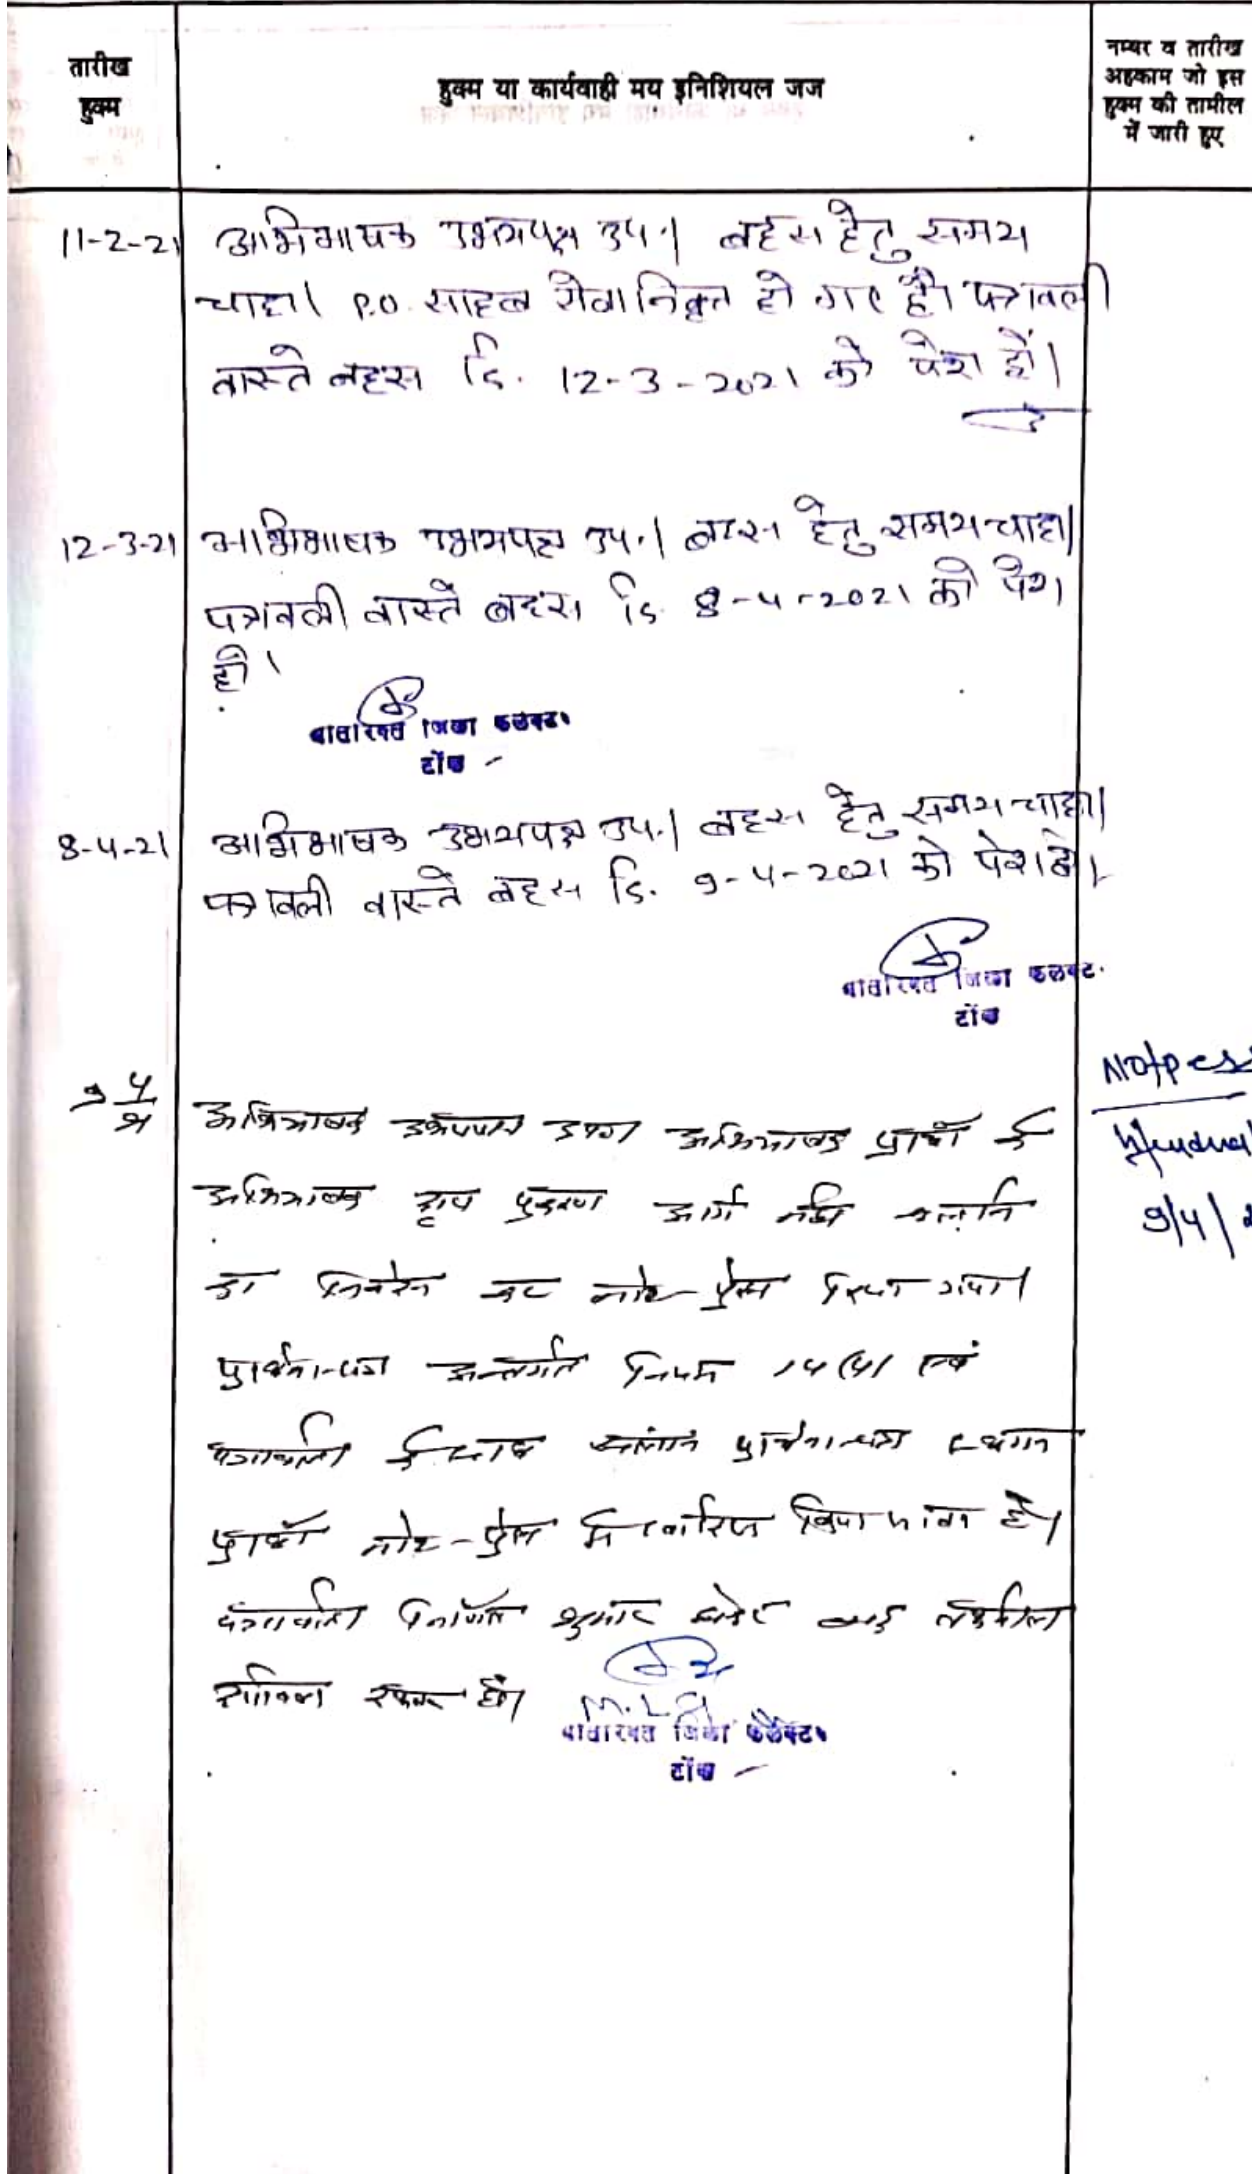 तारीख
हुक्म
हुक्म या कार्यवाही मय इनिशियल जज
नम्बर व तारीख
अहकाम जो इस
हुक्म की तामील
में जारी हुए
11-2-21 अभिभाषक उभयपक्ष उप.। बहस हेतु समय
चाहा। P.O. साहब सेवानिवृत हो गए है। पत्रावली
वास्ते बहस दि. 12-3-2021 को पेश हों।
12-3-21 अभिभाषक उभयपक्ष उप.। बहस हेतु समय चाहा।
पत्रावली वास्ते बहस दि. 8-4-2021 को पेश
हो।
जिला कलक्टर
टोंक
8-4-21 अभिभाषक उभयपक्ष उप.। बहस हेतु समय चाहा।
पत्रावली वास्ते बहस दि. 9-4-2021 को पेश हो।
जिला कलक्टर
टोंक
9/4/21 अभिभाषक उभयपक्ष अभिभाषक प्रार्थी के
अभिभाषक द्वारा प्रकरण आगे नही चलाने
का निवेदन कर नोट-प्रेस किया गया।
प्रार्थना-पत्र अन्तर्गत नियम 14(4) एवं
पत्रावली के साथ संलग्न प्रार्थना-पत्र स्थगन
प्रार्थी नोट-प्रेस में खारिज किया जाता है।
पत्रावली निर्णित शुमार होकर बाद तकमील
दाखिल दफ्तर हो।
जिला कलेक्टर
टोंक
Not press
9/4/